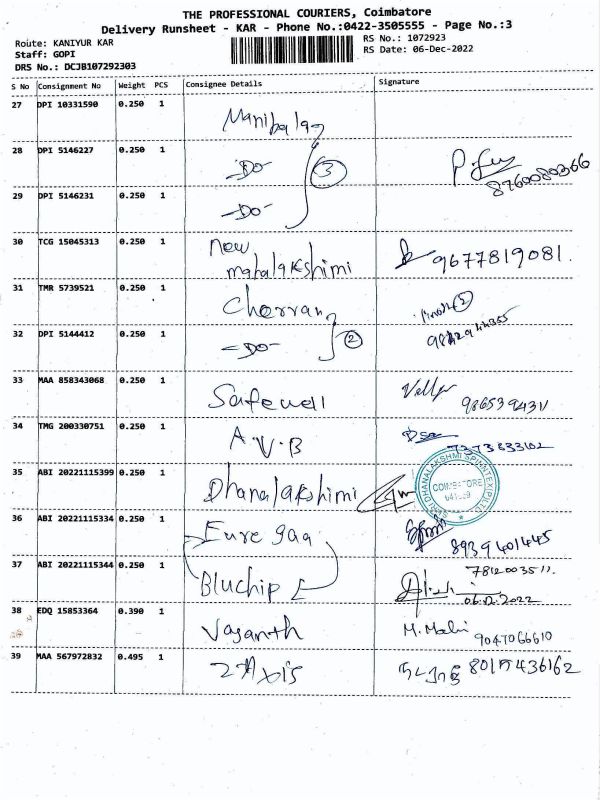 THE PROFESSIONAL COURIERS, Coimbatore
Delivery Runsheet - KAR - Phone No.:0422-3505555 - Page No.:3
Route: KANIYUR KAR
RS No.: 1072923
Staff: GOPI
RS Date: 06-Dec-2022
DRS No.: DCJB107292303
S No Consignment No Weight PCS Consignee Details Signature
27 DPI 10331590 0.250 1
28 DPI 5146227 0.250 1 -Do- 3 8760080366
29 DPI 5146231 0.250 1 -Do-
30 TCG 15045313 0.250 1 new mahalakshimi 9677819081.
31 TMR 5739521 0.250 1 Cherran 2
32 DPI 5144412 0.250 1 -Do- 2
33 MAA 858343068 0.250 1 Safewell
34 TMG 200330751 0.250 1 A.V.B 7373633102
35 ABI 20221115399 0.250 1 Dhanalakshimi
DHANALAKSHMI SPINNTEX (P) LTD
COIMBATORE
36 ABI 20221115334 0.250 1 8939401445
37 ABI 20221115344 0.250 1 Bluchip 7812003511.
06.12.2022
38 EDQ 15853364 0.390 1 Vasanth 9047066610
39 MAA 567972832 0.495 1